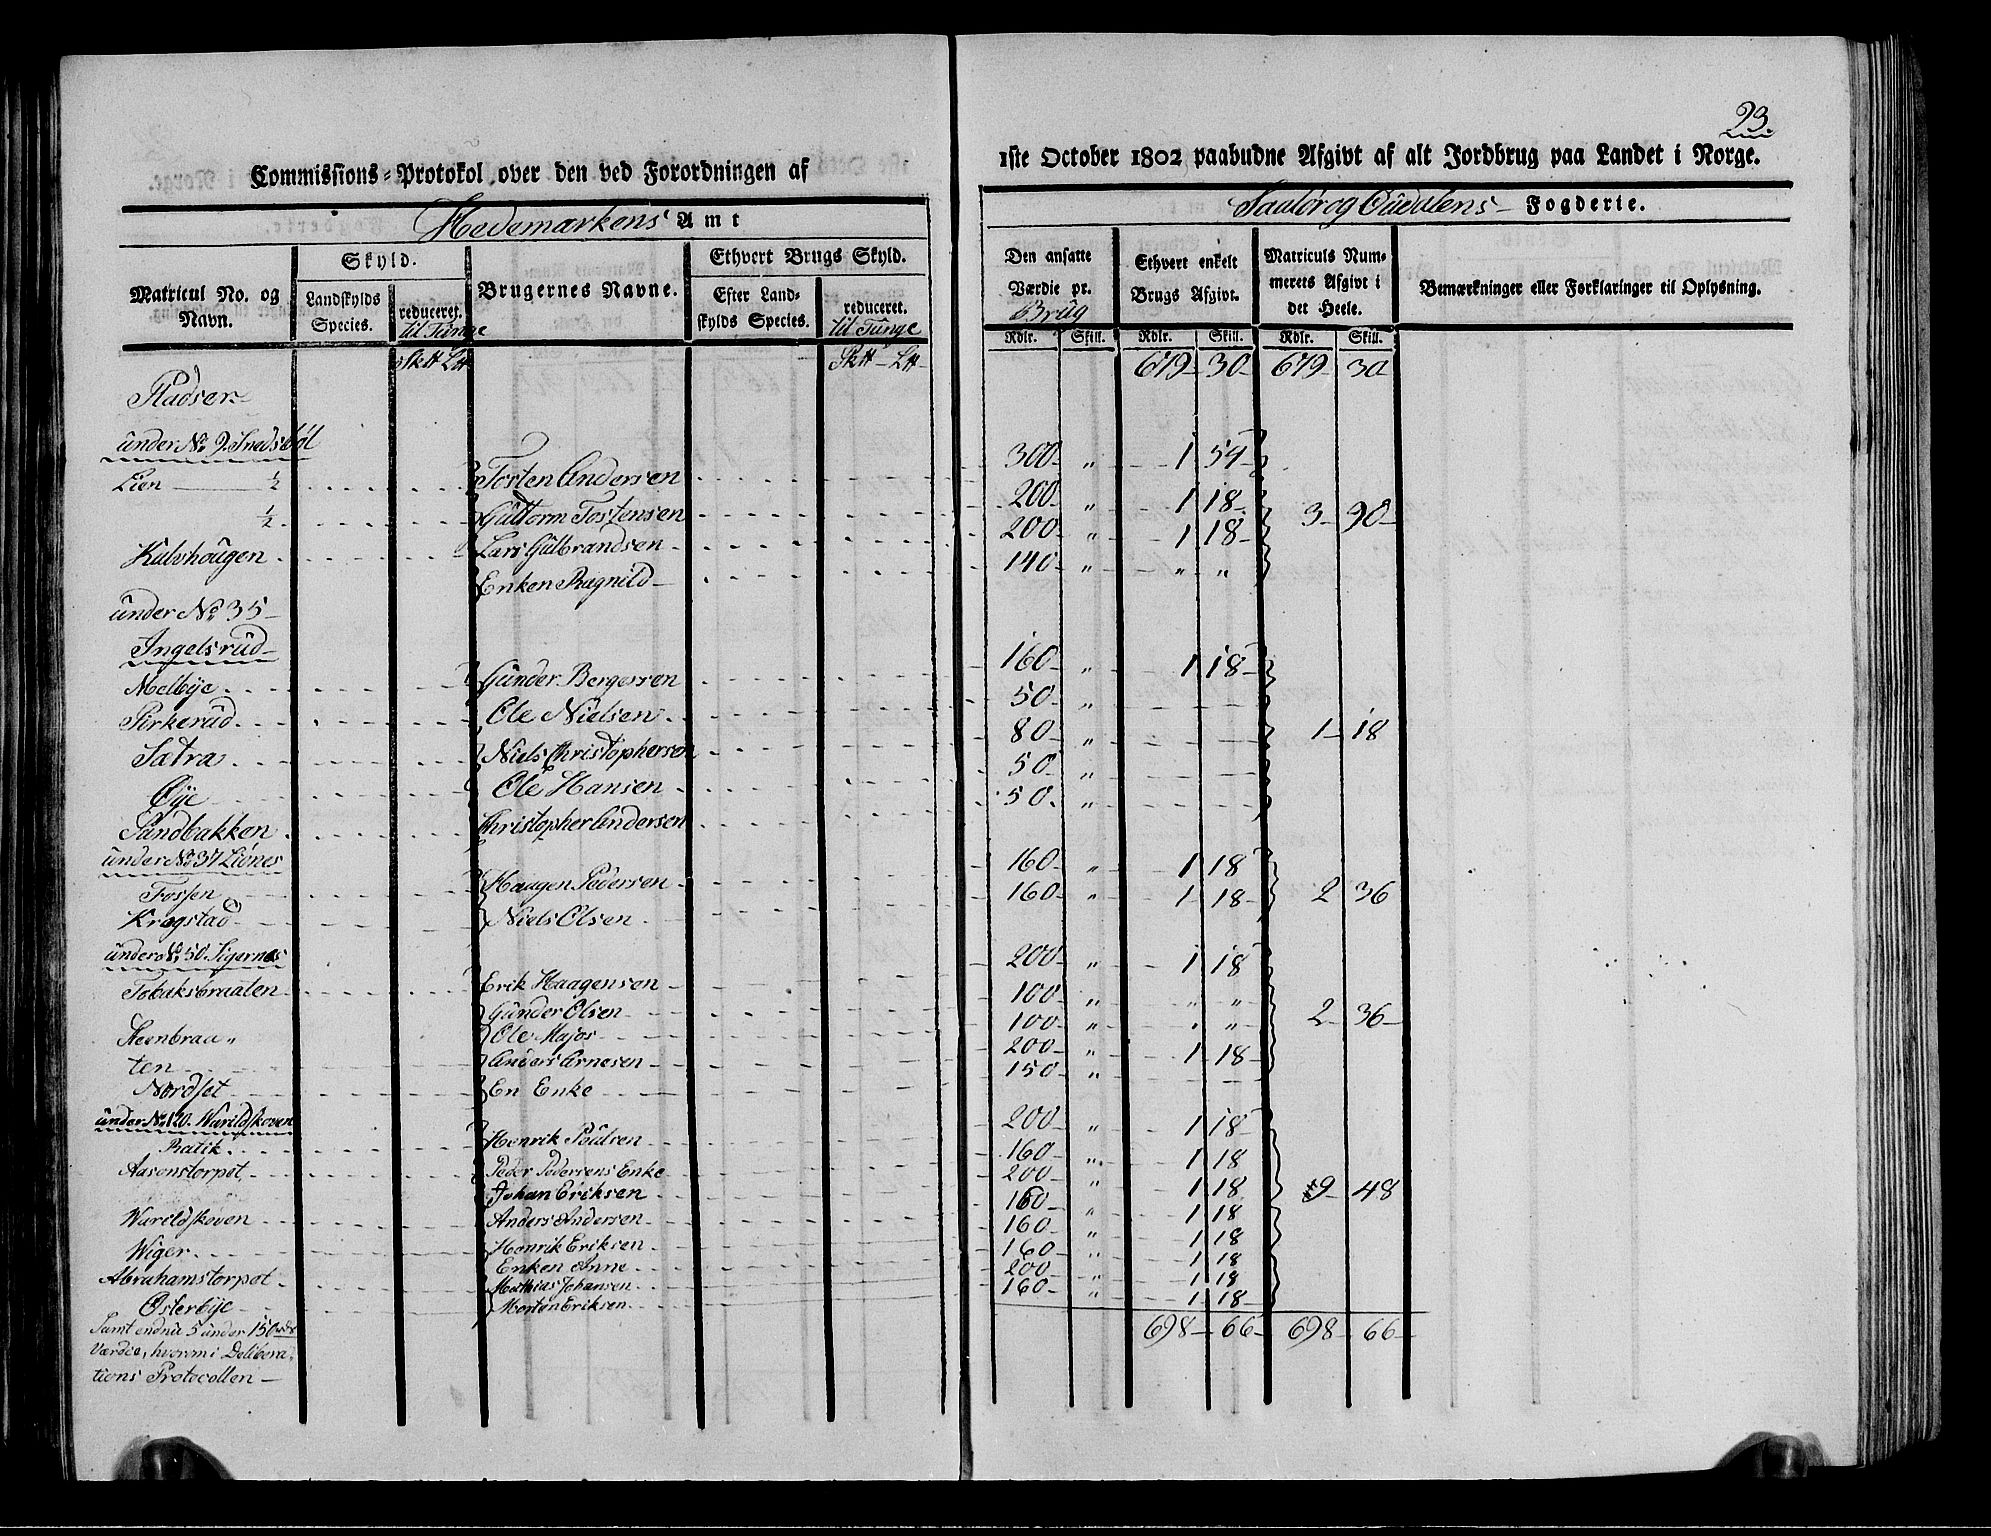 23.
Commissions-Protokol over den ved Forordningen af 1ste October 1802 paabudne Afgivt af alt Jordbrug paa Landet i Norge.
Hedemarkens Amt Fogderie.
Matricul No. og Navn. Skyld. Landskylds Species. reduceret. til Tunge Brugernes Navne. Ethvert Brugs Skyld. Efter Landskylds Species. reduceret. til Tunge Den ansatte Værdie pr. Brug Ethvert enkelt Brugs Afgivt. Matriculs Nummerets Afgivt i det Heele. Bemærkninger eller Forklaringer til Oplysning.
Rdlr. Skill. Rdlr. Skill. Rdlr. Skill.
679 30 679 30
Pladser
under No 9. Snedsbøl
Lien ½ Tosten Andersen 300 " 1 54
½ Guttorm Tostensen 200 " 1 18 3 90
Kulvhougen Lars Gulbrandsen 200 " 1 18
Enken Ragnild 140 " " "
under No 35
Ingelsrud
Melbye Gunder Bergersen 160 " 1 18
Pirkerud Ole Nielsen 50 "
Sætra Niels Christophersen 80 " 1 18
Øye Ole Hansen 50 "
Sandbakken Christopher Andersen 50 "
under No 37 Liones
Fossen Haagen Pedersen 160 " 1 18
Krogstad Niels Olsen 160 " 1 18 2 36
under No 50. Sigernes
Tobaksbraaten Erik Haagensen 200 " 1 18
Gunder Olsen 100 " " "
Steenbraa" Ole Majos 100 " " " 2 36
ten Anders Arnesen 200 " 1 18
Nordset En Enke 150 "
under No 120. Warildskoven
Ratik Henrik Poulsen 200 " 1 18
Aasenstorpet Peder Pedersens Enke 160 " 1 18
Johan Eriksen 200 " 1 18 9 48
Warildskoven Anders Andersen 160 " 1 18
Wiger Henrik Eriksen 160 " 1 18
Enken Anne 160 " 1 18
Abrahamstorpet Mathias Johansen 200 " 1 18
Østerbye Morten Eriksen 160 " 1 18
Samt endnu 5 under 150 rdrs 698 66 698 66
Værdie, hvorom i Delibera,
tions Protocollen